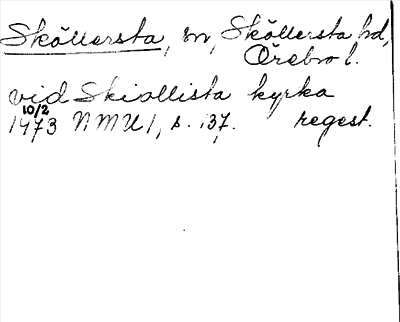 Sköllersta, sn, Sköllersta hd,
Örebro l.
vid Skiøllista kyrka
10/2
1473 NMU 1, s. 137. regest.